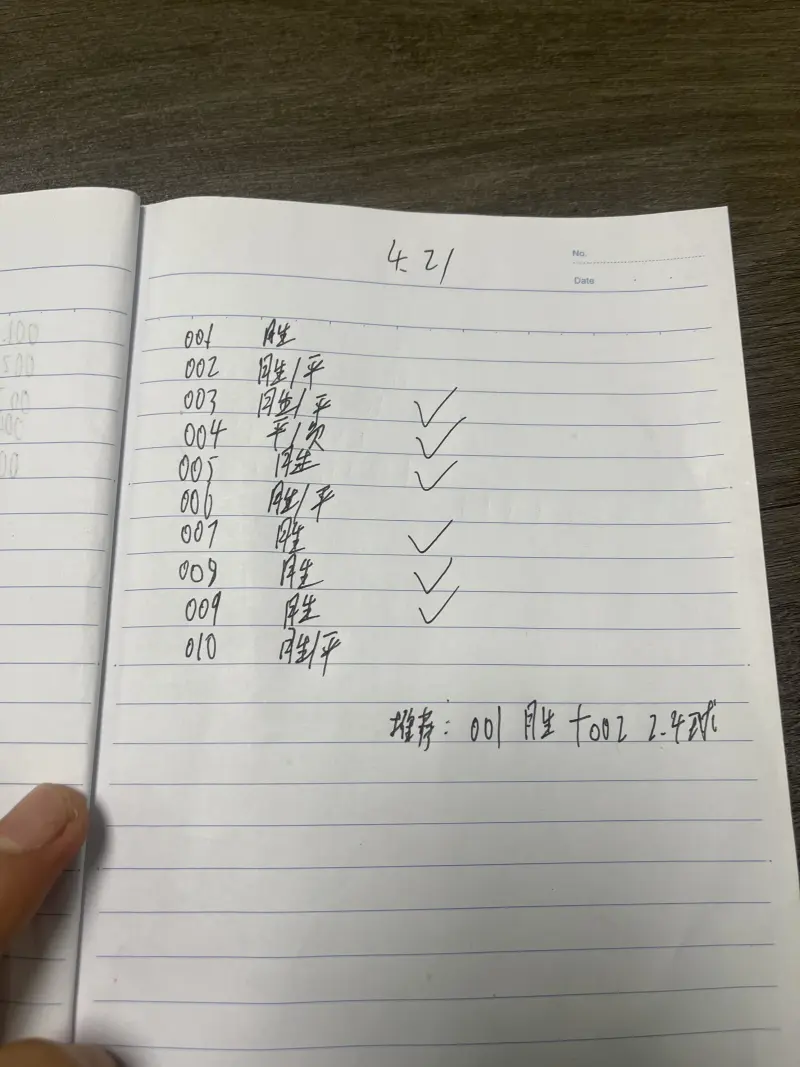 4.21
No.
Date
001 胜
002 胜/平
003 胜/平 ✓
004 平/负 ✓
005 胜 ✓
006 胜/平
007 胜 ✓
008 胜 ✓
009 胜 ✓
010 胜/平
推荐: 001 胜 +002 2.4球